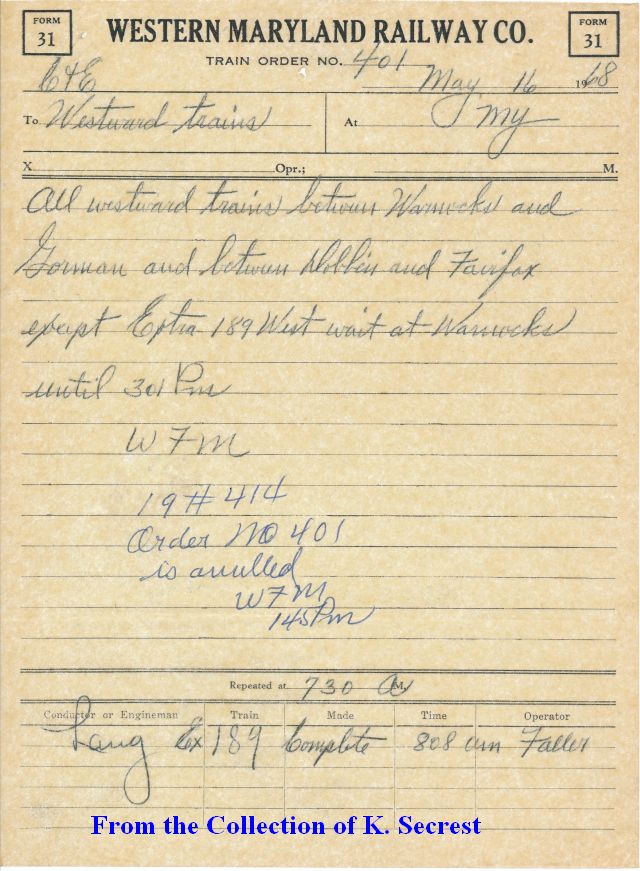 FORM
31
WESTERN MARYLAND RAILWAY CO.
FORM
31
TRAIN ORDER NO. 401
C&E May 16 1968
To Westward trains At My
X Opr.; M.
All westward trains between Warnocks and
Gorman and between Dobbin and Fairfax
except Extra 189 West wait at Warnocks
until 301 Pm
W F M
19 # 414
Order No 401
is anulled
W F M
145 Pm
Repeated at 730 A M.
Conductor or Engineman Train Made Time Operator
Lang Ex 189 Complete 808 am Faller
From the Collection of K. Secrest